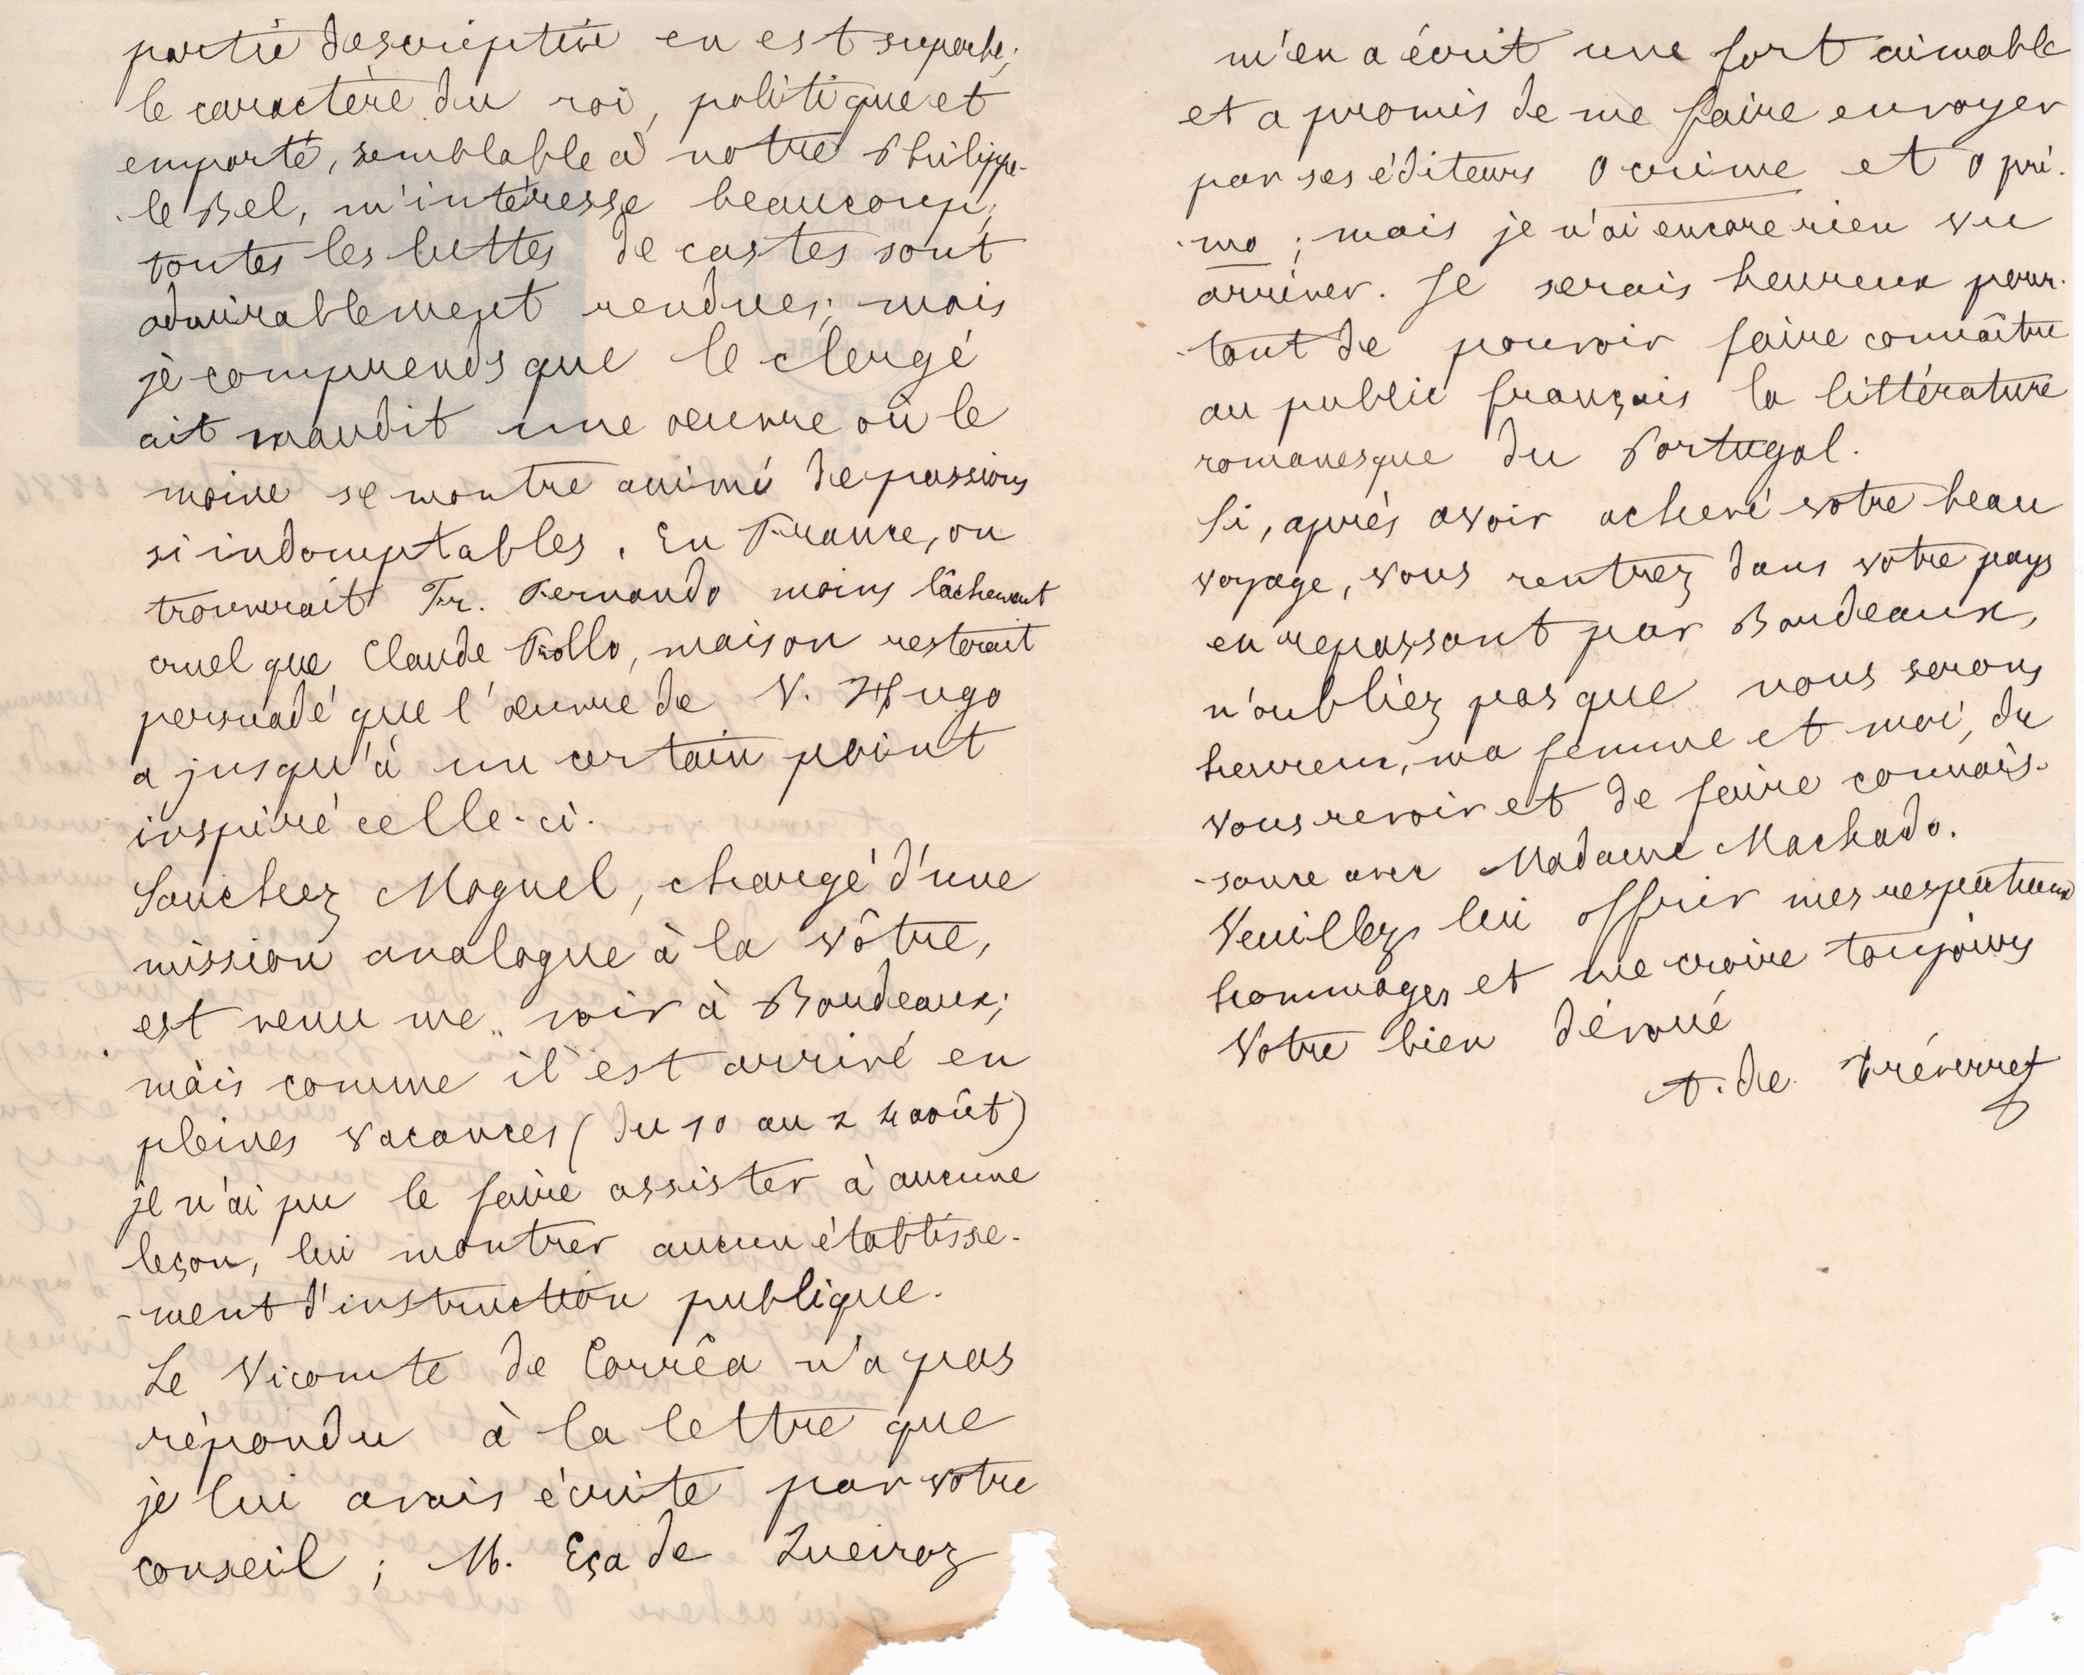 partie descriptive en est superbe;
le caractère du roi, politique et
emporté, semblable à notre Philippe-
le Bel, m'intéresse beaucoup;
toutes les luttes de castes sont
admirablement rendues; mais
je comprends que le clergé
ait maudit une œuvre où le
moine se montre animé de passions
si indomptables. En France, on
trouverait Fr. Fernando moins lâchement
cruel que Claude Frollo, mais on resterait
persuadé que l'œuvre de V. Hugo
a jusqu'à un certain point
inspiré celle-ci.
Sanchez Moguel, chargé d'une
mission analogue à la vôtre,
est venu me voir à Bordeaux;
mais comme il est arrivé en
pleines vacances (du 10 au 24 août)
je n'ai pu le faire assister à aucune
leçon, lui montrer aucun établisse-
-ment d'instruction publique.
Le Vicomte de Corrêa n'a pas
répondu à la lettre que
je lui avais écrite par votre
conseil; M. Eça de Queiroz
m'en a écrit une fort aimable
et a promis de me faire envoyer
par ses éditeurs O crime et O pri-
-mo; mais je n'ai encore rien vu
arriver. Je serais heureux pour-
-tant de pouvoir faire connaître
au public français la littérature
romanesque du Portugal.
Si, après avoir achevé votre beau
voyage, vous rentrez dans votre pays
en repassant par Bordeaux,
n'oubliez pas que nous serons
heureux, ma femme et moi, de
vous revoir et de faire connais-
-sance avec Madame Machado.
Veuillez lui offrir mes respectueux
hommages et me croire toujours
Votre bien dévoué
A. de Tréverret